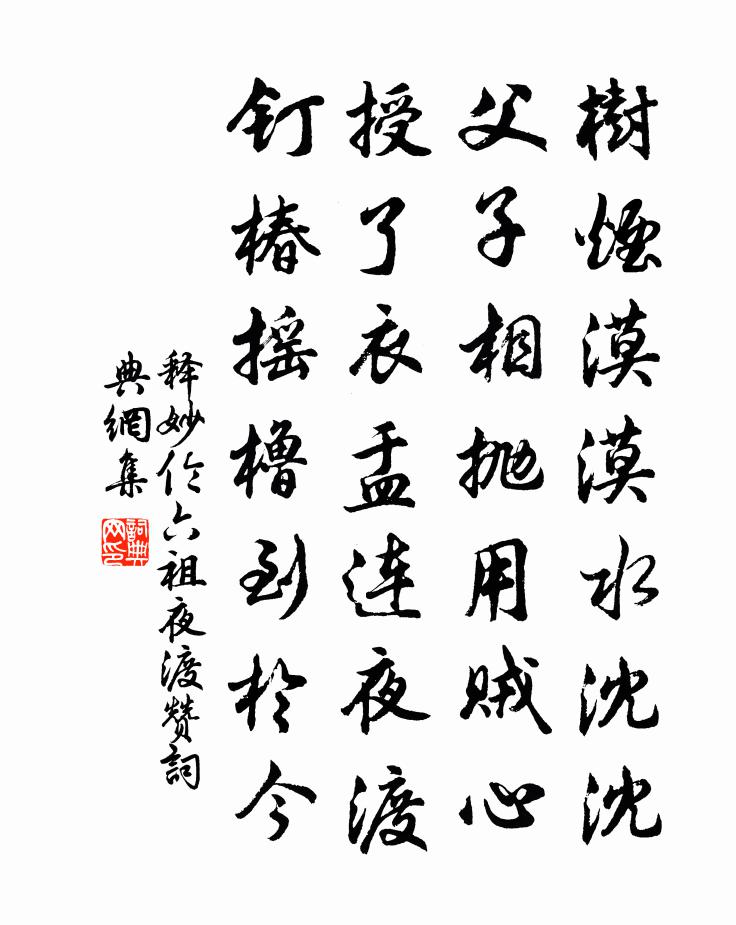 樹煙漠漠水沈沈
父子相抛用賊心
授了衣盂連夜渡
釘樁摇櫓到於今
释妙伦六祖夜渡赞詞
典網集
詞典网印